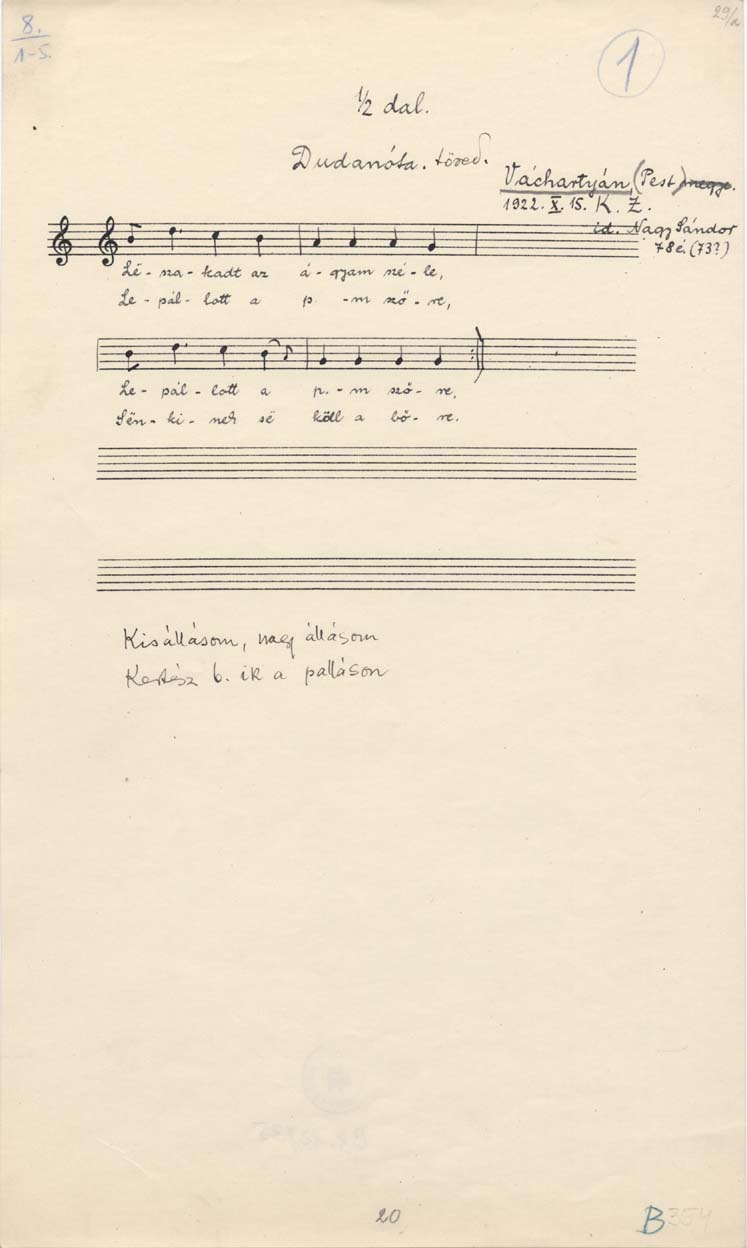 8.
1-5.
29/a
1
1/2 dal.
Dudanóta. töred.
Váchartyán, (Pest) megye.
1922. X. 15. K. Z.
id. Nagy Sándor
78 é. (73?)
Lë - sza - kadt az á - gyam szé - le,
Le - pál - lott a p. - m sző - re,
Le - pál - lott a p. - m sző - re,
Sën - ki - nek së köll a bő - re.
Kisállásom, nagy állásom
Kertész b. ik a palláson
20
B 354